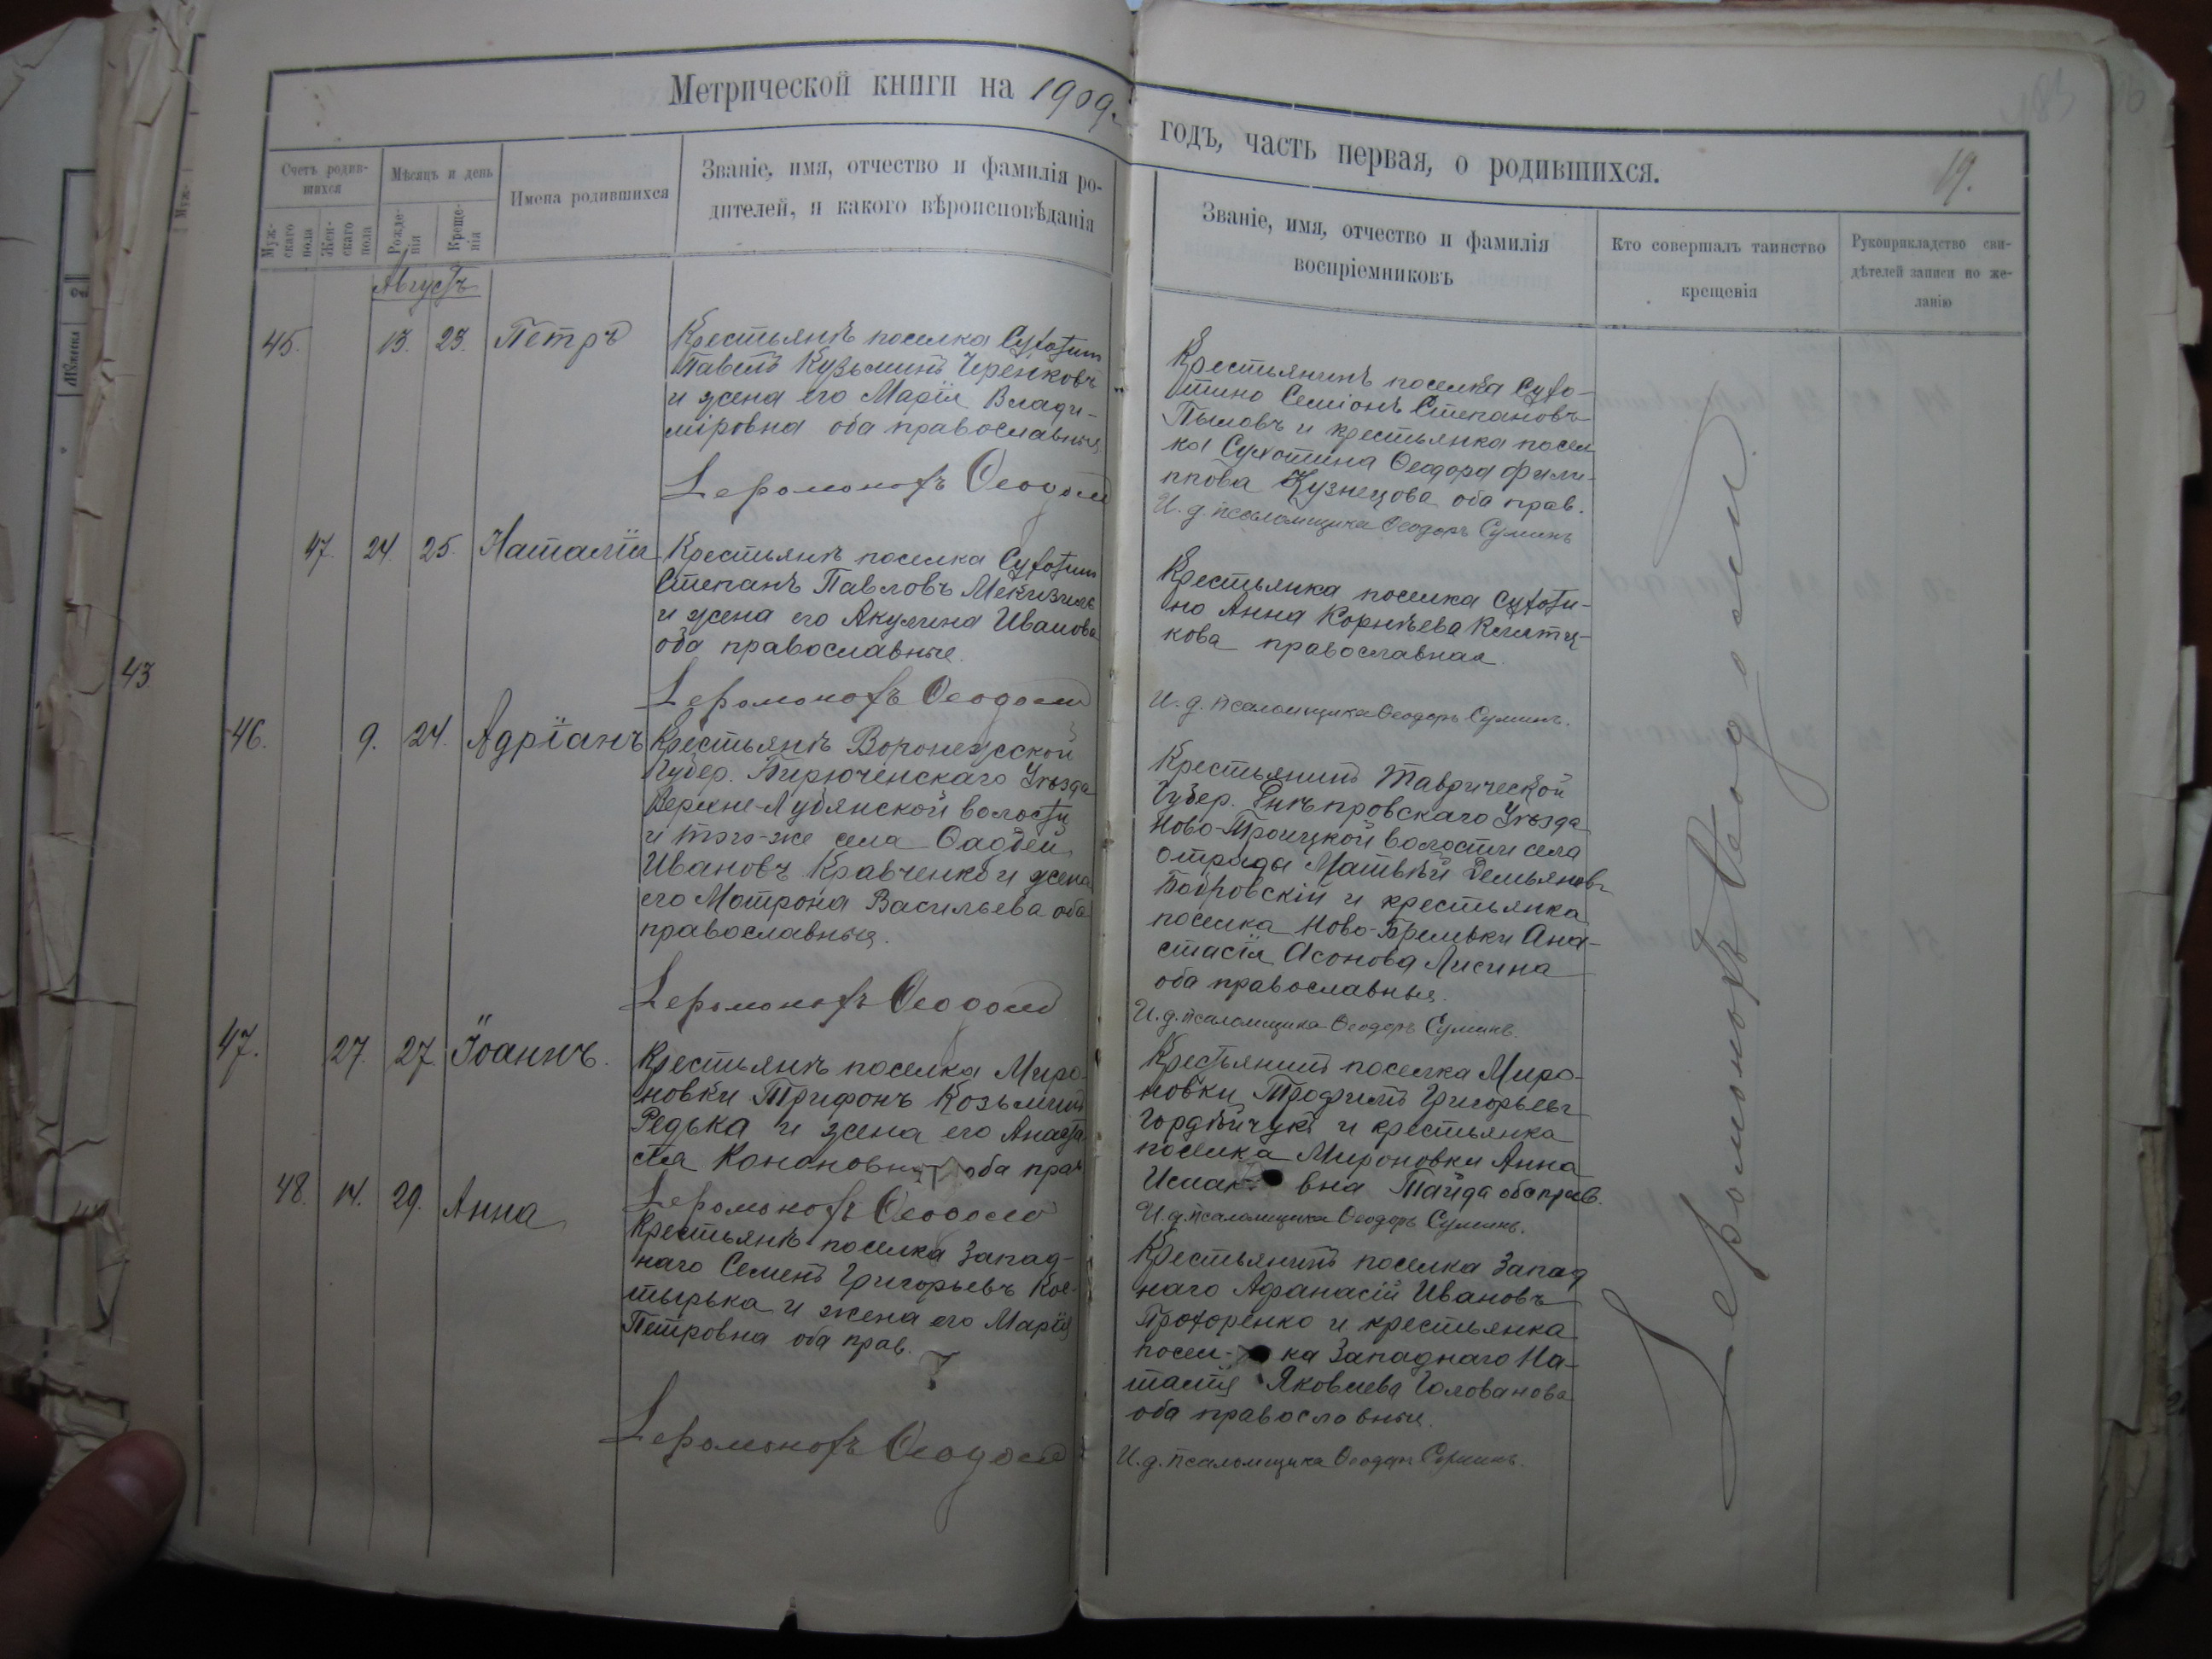 Метрической книги на 1909 г.
годъ, часть первая, о родившихся.
19.
Счетъ родив-
шихся
Муж-
скаго
пола
Жен-
скаго
пола
Мѣсяцъ и день
Рожде-
нія
Креще-
нія
Имена родившихся
Званіе, имя, отчество и фамилія ро-
дителей, и какого вѣроисповѣданія
Званіе, имя, отчество и фамилія
воспріемниковъ
Кто совершалъ таинство
крещенія
Рукоприкладство сви-
дѣтелей записи по же-
ланію
Августъ
45. 13. 23. Петръ
Крестьянъ поселка Сухотин
Павелъ Кузьминъ Черенковъ
и жена его Марія Влади-
міровна оба православные
Іеромонахъ Ѳеодосій
Крестьянинъ поселка Сухо-
тино Семіонъ Степановъ
Пыловъ и крестьянка посел
ка Сухотина Ѳеодора Фили-
ппова Кузнецова оба прав.
И. д. псаломщика Ѳеодоръ Суминъ
47. 24. 25. Наталія
Крестьянъ поселка Сухотин
Степанъ Павловъ
и жена его Акулина Иванова
оба православные.
Іеромонахъ Ѳеодосій
Крестьянка поселка Сухоти-
но Анна Корнѣева
кова православная.
И. д. псаломщика Ѳеодоръ Суминъ.
46. 9. 24. Адріанъ
Крестьянъ Воронежской
Губер. Бирюченскаго Уѣзда
Верхне-Лубянской волости
и того-же села Ѳаддей
Ивановъ Кравченко и жена
его Матрона Васильева оба
православныя.
Іеромонахъ Ѳеодосій
Крестьянинъ Таврической
Губер. Днѣпровскаго Уѣзда
Ново-Троицкой волости села
Отрады Матвѣй Демьяновъ
Бобровскій и крестьянка
поселка Ново- Ана-
стасія Асонова Лисина
оба православныя.
И. д. псаломщика Ѳеодоръ Суминъ.
47. 27. 27. Іоаннъ.
Крестьянъ поселка Миро-
новки Трифонъ Козьминъ
Редька и жена его Анаста
сія Конановна оба прав
Іеромонахъ Ѳеодосій
Крестьянинъ поселка Миро-
новки Трофимъ Григорьевъ
Гордѣйчукъ и крестьянка
поселка Мироновки Анна
вна Тайда оба прав.
И. д. псаломщика Ѳеодоръ Суминъ.
48. 14. 29. Анна
Крестьянъ поселка Запад-
наго Семенъ Григорьевъ Кос-
тырька и жена его Марія
Петровна оба прав.
Іеромонахъ Ѳеодосій
Крестьянинъ поселка Запад
наго Афанасій Ивановъ
Прохоренко и крестьянка
посел- ка Западнаго На-
талія Яковлева Голованова
оба православныи.
И. д. псаломщика Ѳеодоръ Суминъ.
Іеромонахъ Ѳеодосій
43